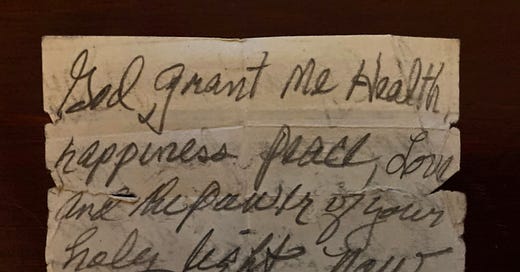 God, grant me Health,
happiness peace, Love
and the power of your
holy light now